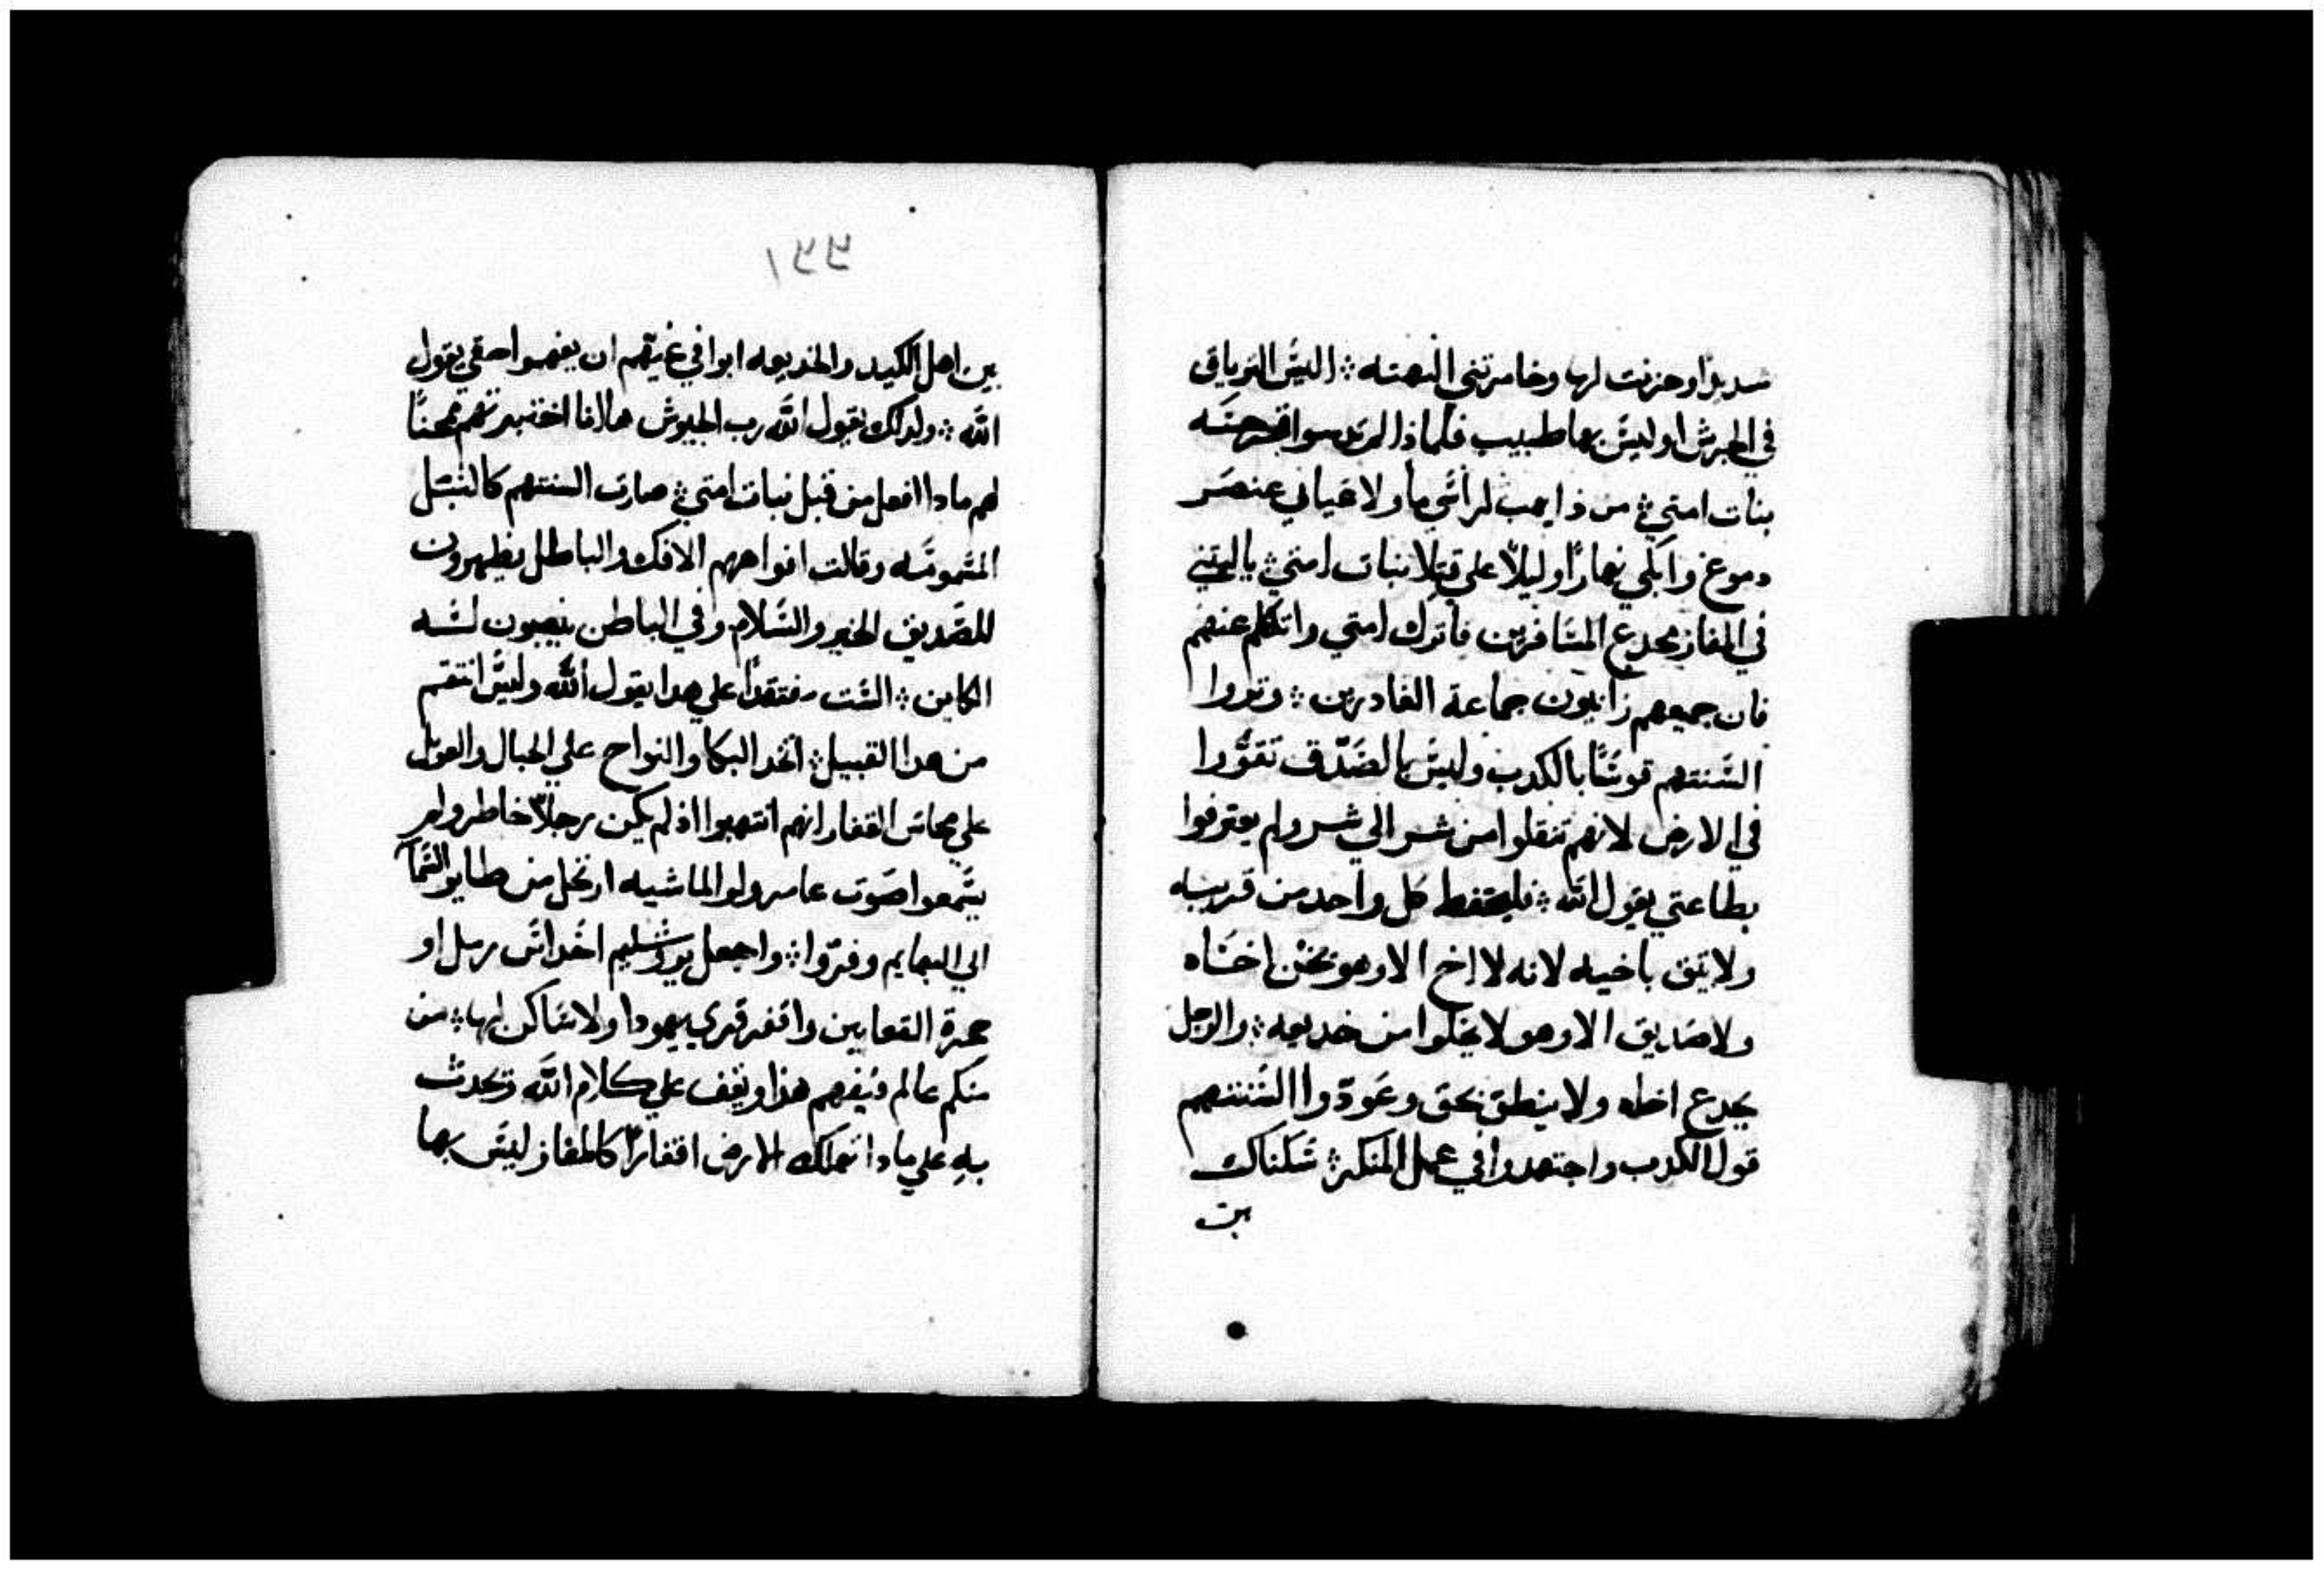 شديدًا وحزنت لها وخامرتني البهته ؞ اليس الترياق
في الجرش او ليس بها طبيب فلماذا لم قرحته
بنات امتي ؞ من ذا يهب لراسي ما ولاعياني عنصر
دموع وابكي نهارًا وليلًا علي قتلا بنات امتي ؞ يا ليتني
في المفاز مجدع المسافرين فاترك امتي واتكلم عنهم
فان جميعهم زانيون جماعة الغادرين ؞ وتوروا
السنتهم قوسًا بالكدب وليس بالصدق تقوَّوا
في الارض لانهم تنقلوا من شر الي شر ولم يعترفوا
بطاعتي يقول الله ؞ فليتحفط كل واحد من قريبه
ولا يثق باخيه لانه لا اخ الا وهو يخن اخاه
ولا صديق الا وهو لا يخلوا من خديعه ؞ والرجل
يجدع اخاه ولا ينطق بحق وعودوا السنتهم
قول الكدب واجتهدوا في عمل المنكر ؞ سكناك
بين
٢٢١
بين اهل الكيد والخديعه ابوا في غيّهم ان يفهموا حقي يقول
الله ؞ ولدلك يقول الله رب الجيوش هاانا اختبرتهم محنًا
لهم مادا افعل من قبل بنات امتي ؞ صارت السنتهم كالنبل
المسمومه وقالت افواههم الافك والباطل يظهرون
للصديق الخير والسلام وفي الباطن ينصبون لسه
الكاين ؞ الست مفتقدًا علي هدا يقول الله وليس انتقم
من هدا القبيل ؞ اتخد البكا والنواح علي الجبال والعول
علي محاسن القفار انهم انتهبوا اذ لم يكن رجلًا خاطر ولم
يسمعوا صوت عامر ولو الماشيه ارتحل من طاير السما
الي البهايم وفرّوا ؞ واجعل يروشليم اخداس رمل او
حجرة التعابين واقفر قري يهودا ولا ساكن لها ؞ من
منكم عالم ويفهم هذا ويقف علي كلام الله وتحدث
به علي مادا تهلك الارض اقفارًا كالمفاز ليس بها